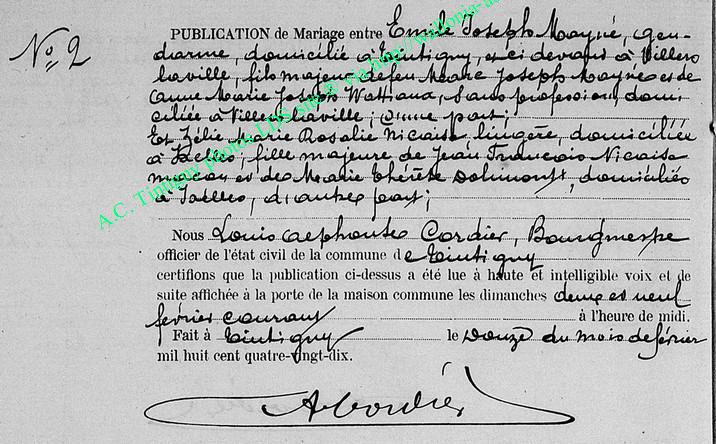 Nº 2
PUBLICATION de Mariage entre Emile Joseph Mayné, gen-
darme, domicilié à Tintigny, et ci devant à Villers
la ville, fils majeur de feu Marc Joseph Mayné et de
Anne Marie Joseph Wattiaux, sans profession, domi-
ciliée à Villers la ville; d'une part;
Et Zélie Marie Rosalie Nicaise lingère, domiciliée
à Ixelles, fille majeure de Jean François Nicaise
maçon et de Marie Thérèse Dolimont, domiciliés
à Ixelles, d'autre part;
Nous Louis Alphonse Cordier, Bourgmestre
officier de l'état civil de la commune de Tintigny
certifions que la publication ci-dessus a été lue à haute et intelligible voix et de
suite affichée à la porte de la maison commune les dimanches deux et neuf
février courant à l'heure de midi.
Fait à Tintigny le Douze du mois de février
mil huit cent quatre-vingt-dix.
A Cordier
A.C. Tintigny photos LDS site @ via http://wallonia-